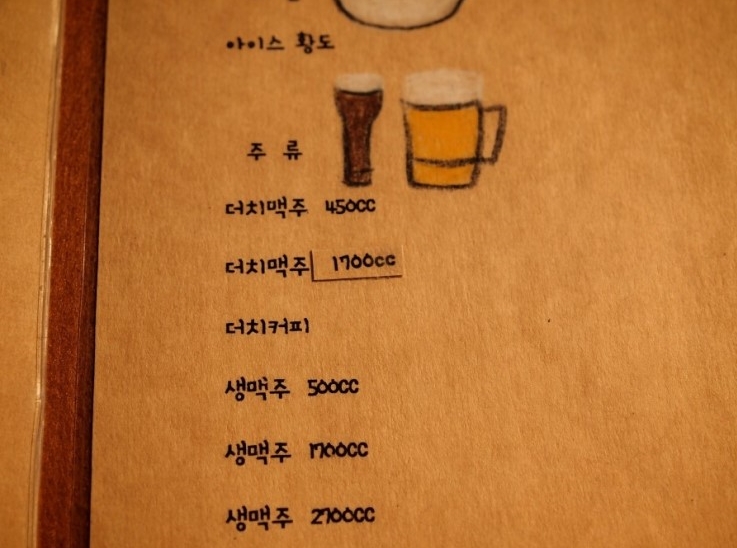 아이스 황도
주 류
더치맥주 450cc
더치맥주 1700cc
더치커피
생맥주 500cc
생맥주 1700cc
생맥주 2700cc